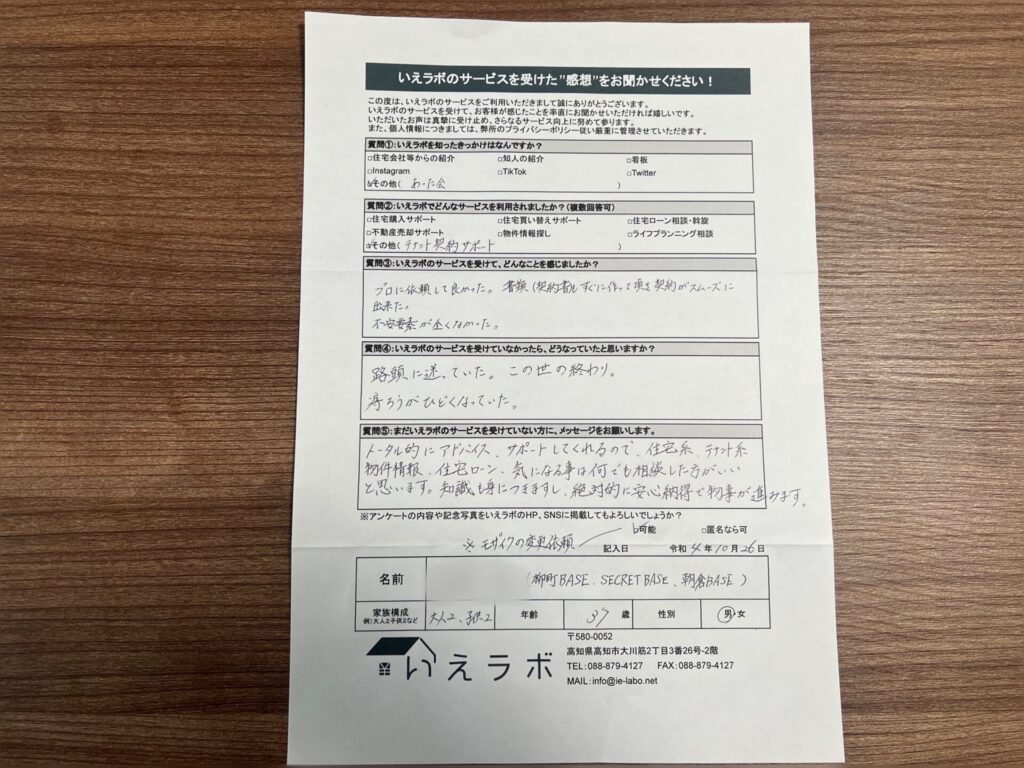 いえラボのサービスを受けた"感想"をお聞かせください！
この度は、いえラボのサービスをご利用いただきまして誠にありがとうございます。
いえラボのサービスを受けて、お客様が感じたことを率直にお聞かせいただければ嬉しいです。
いただいたお声は真摯に受け止め、さらなるサービス向上に努めて参ります。
また、個人情報につきましては、弊所のプライバシーポリシー従い厳重に管理させていただきます。
質問①：いえラボを知ったきっかけはなんですか？
□住宅会社等からの紹介 □知人の紹介 □看板
□Instagram □TikTok □Twitter
☑その他( あった会 )
質問②：いえラボでどんなサービスを利用されましたか？(複数回答可)
□住宅購入サポート □住宅買い替えサポート □住宅ローン相談・斡旋
□不動産売却サポート □物件情報探し □ライフプランニング相談
☑その他( テナント契約サポート )
質問③：いえラボのサービスを受けて、どんなことを感じましたか？
プロに依頼して良かった。書類(契約書)もすぐに作って頂き契約がスムーズに
出来た。
不安要素が全くなかった。
質問④：いえラボのサービスを受けていなかったら、どうなっていたと思いますか？
路頭に迷っていた。この世の終わり。
痔ろうがひどくなっていた。
質問⑤：まだいえラボのサービスを受けていない方に、メッセージをお願いします。
トータル的にアドバイス、サポートしてくれるので、住宅系、テナント系
物件情報、住宅ローン、気になる事は何でも相談した方がいい
と思います。知識も身につきますし、絶対的に安心納得で物事が進みます。
※アンケートの内容や記念写真をいえラボのHP、SNSに掲載してもよろしいでしょうか？
☑可能 □匿名なら可
※ モザイクの変更依頼
記入日 令和 4 年 10 月 26 日
名前 (柳町BASE、SECRET BASE、朝倉BASE)
家族構成 例)大人2子供2など 大人2、子供2 年齢 37 歳 性別 男・女
いえラボ
〒580-0052
高知県高知市大川筋2丁目3番26号-2階
TEL：088-879-4127 FAX：088-879-4127
MAIL：info@ie-labo.net